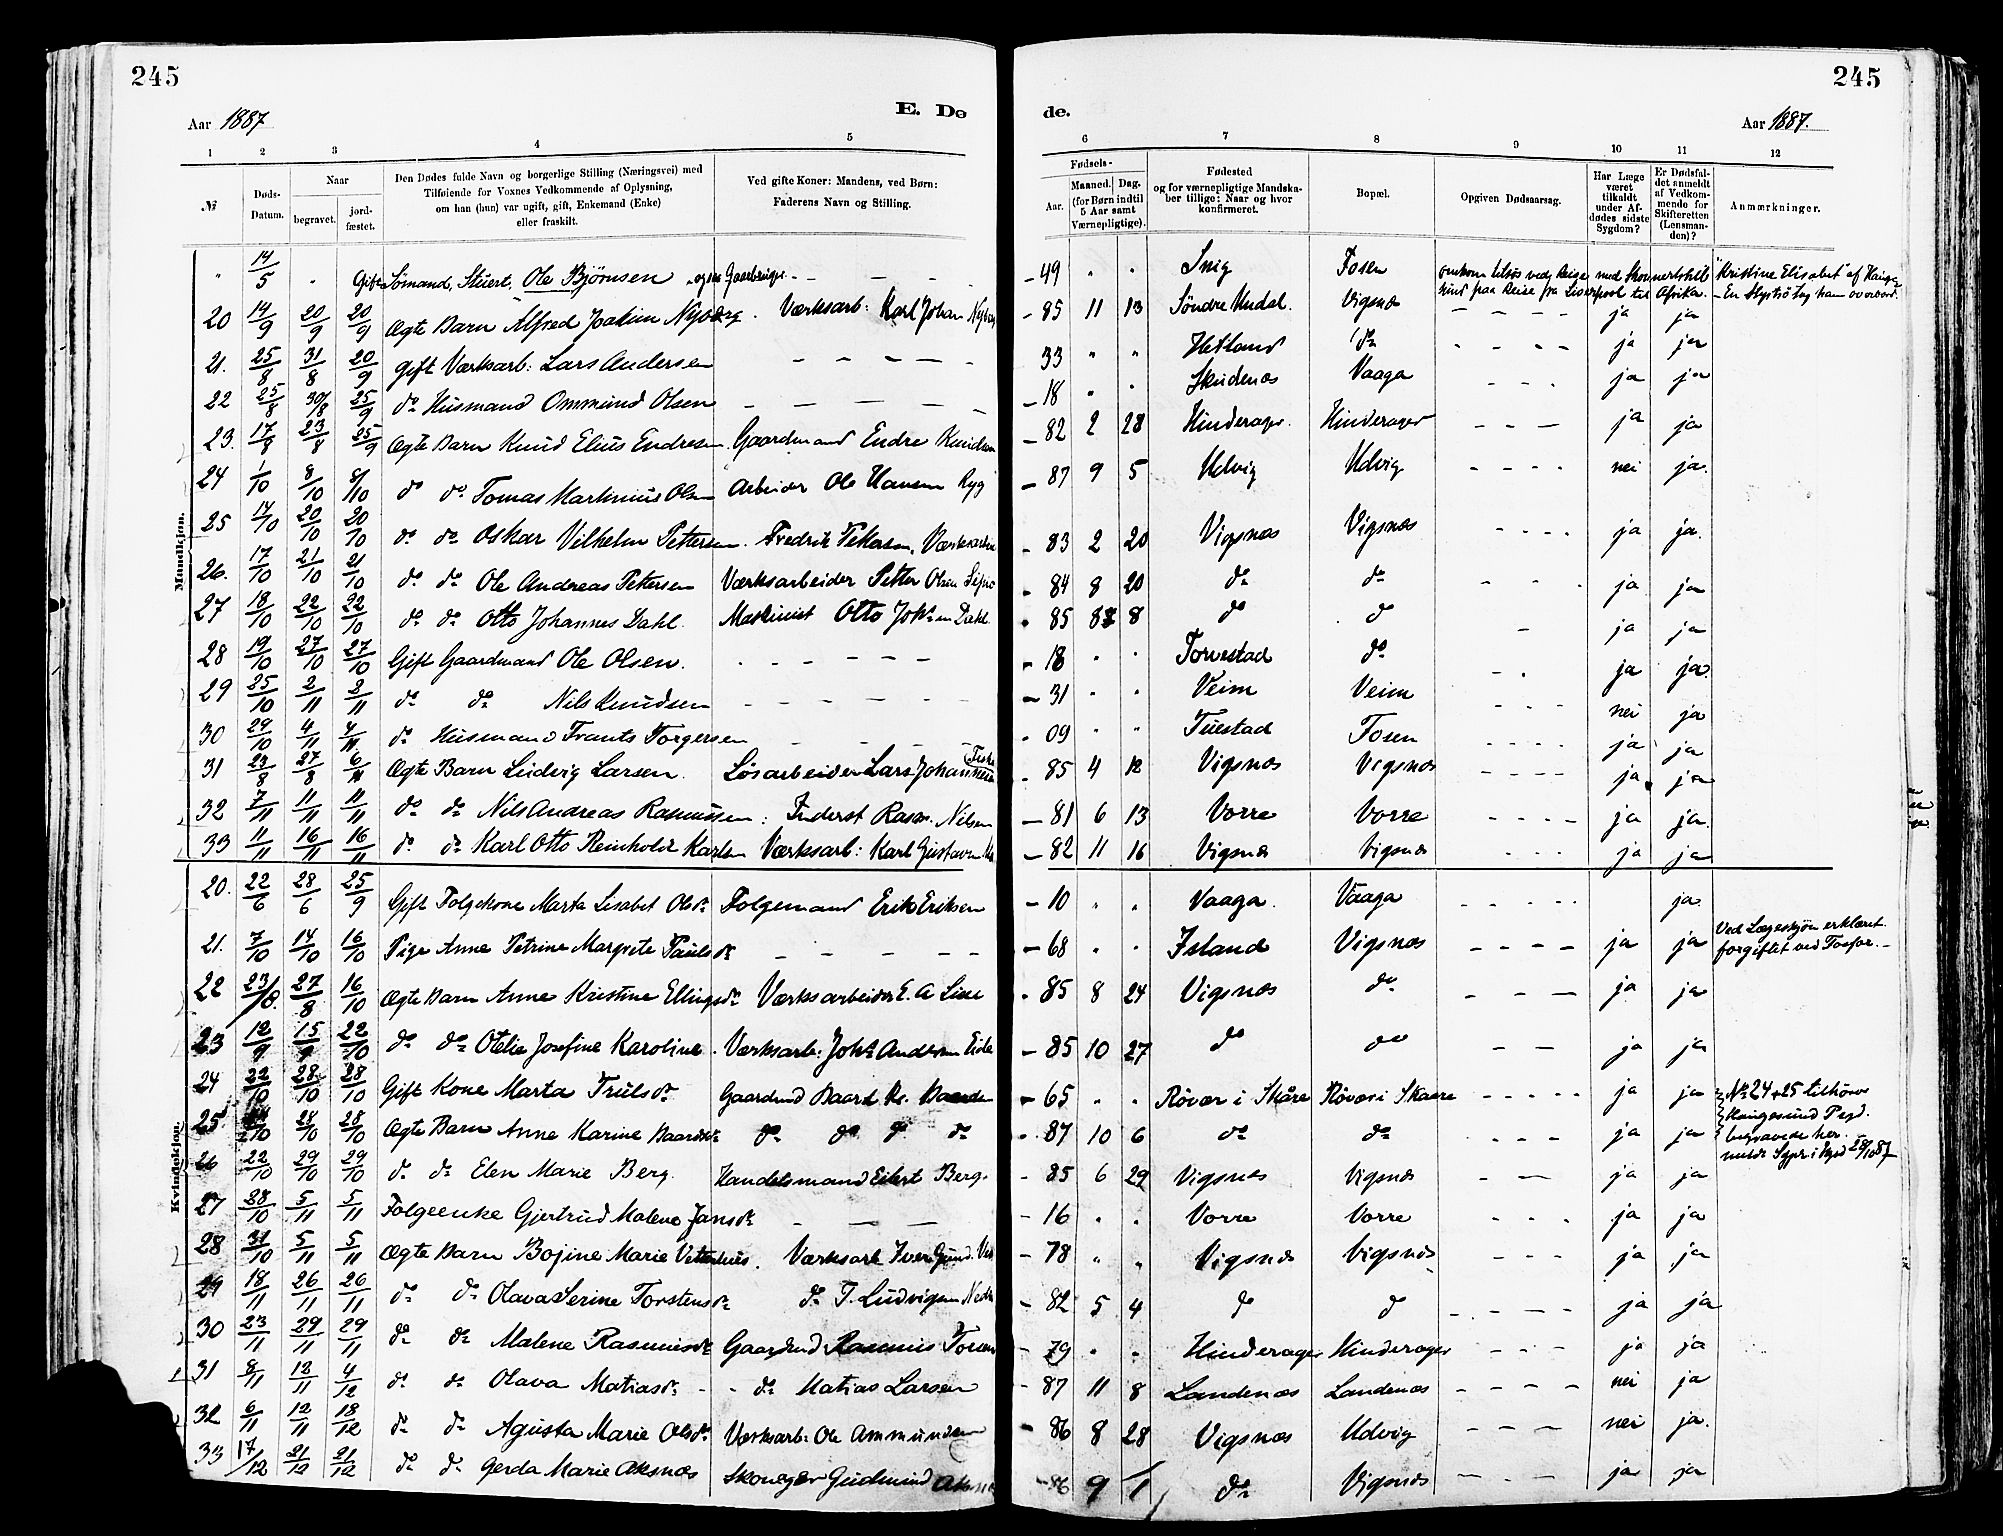 245
245
Aar 1887
E. Dø
de.
Aar 1887.
1 2 3 4 5
6 7 8 9 10 11 12
№
Døds-Datum.
Naar
begravet.
jord-fæstet.
Den Dødes fulde Navn og borgerlige Stilling (Næringsvei) med
Tilføiende for Voxnes Vedkommende af Oplysning,
om han (hun) var ugift, gift, Enkemand (Enke)
eller fraskilt.
Ved gifte Koner: Mandens, ved Børn:
Faderens Navn og Stilling.
Fødsels-
Aar.
Maaned. Dag.
(for Børn indtil
5 Aar samt
Værnepligtige).
Fødested
og for værnepligtige Mandska-
ber tillige: Naar og hvor
konfirmeret.
Bopæl.
Opgiven Dødsaarsag.
Har Læge
været
tilkaldt
under Af-
dødes sidste
Sygdom?
Er Dødsfal-
det anmeldt
af Vedkom-
mende for
Skifteretten
(Lensman-
den)?
Anmærkninger.
Mandkjøn.
" 14/5 " Gift Sømand, Stuert, Ole Bjørnsen og Gaardbruger - 49 " " Snig Fosen omkom tilsøs ved Reise med Skonnertskib "Kristine Elisabet" af Hauge-
sund paa Reise fra Liverpool til Afrika. - En Styrtsø tog ham overbord.
20 14/9 20/9 20/9 Ægte Barn Alfred Joakim Nyberg. Værksarb: Karl Johan Nyberg - 85 11 13 Søndre Undal. Vigsnæs ja ja
21. 25/8 31/8 20/9 gift Værksarb: Lars Andersen - 33 " " Hetland do ja ja
22 25/8 30/8 25/9 do Husmand Ommund Olsen - 18 " " Skudenæs Vaaga ja ja
23. 17/8 23/8 25/9 Ægte Barn Knud Elius Endresen Gaardmand Endre Knudsen - 82 2 28 Hinderager. Hinderager ja ja
24 1/10 8/10 8/10 do do Tomas Martinius Olsen Arbeider Ole Hansen Ryg - 87 9 5 Udvig Udvig nei ja.
25 14/10 20/10 20/10 do do Oskar Vilhelm Pettersen. Fredrik Pettersen, Værksarbei - 83 2 20 Vigsnæs Vigsnæs ja ja.
26. 17/10 21/10 21/10 do do Ole Andreas Pettersen Værksarbeider Petter Olsen - 84 8 20 do do ja ja
27 18/10 22/10 22/10 do do Otto Johannes Dahl. Maskinist Otto Johsen Dahl. - 85 8 8 do do ja ja
28 19/10 27/10 27/10 Gift Gaardmand Ole Olsen. - 18 " " Torvestad do ja ja.
29 25/10 2/11 2/11 do do Nils Knudsen - 31 " " Veim Veim nei ja
30 29/10 4/11 4/11 do Husmand Frants Torgersen - 09 " " Tuestad Fosen ja ja
31 23/8 27/8 6/11 Ægte Barn Ludvig Larsen. Løsarbeider Lars Johannesen - 85 4 12 Vigsnæs Vigsnæs ja ja
32 7/11 11/11 11/11 do do Nils Andreas Rasmussen: Inderst Rasm. Nilsen - 81 6 13 Vorre Vorre ja ja.
33 11/11 16/11 16/11 do do Karl Otto Reinholdt Karlsen Værksarb: Karl Gustav - 82 11 16 Vigsnæs Vigsnæs ja ja
Kvindekjøn.
20. 22/6 28/6 25/9 Gift Folgekone Marta Lisabet Olsdr Folgemand Erik Eriksen - 10 " " Vaaga. Vaaga ja.
21. 7/10 14/10 16/10 Pige Anne Petrine Margrete Paulsdr - 68 " " Island Vigsnæs ja ja Ved Lægeskjøn erklæret
forgiftet ved Fosfor. -
22 23/8. 27/8 16/10 Ægte Barn Anne Kristine Ellingsdr Værksarbeider E. A. Lie - 85 8 24 Vigsnæs do ja ja
23 12/9 15/9 22/10 do do Otelie Josefine Karoline. Værksarb: Johs Andersen Eide - 85 10 27 do do ja ja
24 22/10 28/10 28/10 Gift Kone Marta Trulsdr Gaardmd Baard Baardsen - 65 " " Røvær i Skåre Røvær i Skaare ja ja No 24 + 25 tilhører
Haugesund Pegd.
begravede her.
25. 28/10 28/10 Ægte Barn Anne Karine Baardsdr do do do do - 87 10 6 do do ja ja
26 22/10 29/10 29/10 do do Elen Marie Berg. Handelsmand Eilert Berg. - 85 6 29 Vigsnæs Vigsnæs ja ja
27 28/10 5/11 5/11 Folgeenke Gjertrud Malene Jansdr - 16 " " Vorre Vorre ja ja
28 31/10 5/11 5/11 Ægte Barn Bojine Marie Vetterhus. Værksarb Iver Gund. - 78 " " Vigsnæs Vigsnæs ja ja
29 18/11 26/11 26/11 do do Olava Serine Torstensdr do T. Ludvigsen - 82 5 4 do do ja ja
30 23/11 29/11 29/11 do do Malene Rasmusdr Gaardmd Rasmus - 79 " " Hinderager Hinderager ja ja
31 8/11 12/11 4/12 do do Olava Matiasdr - - do Matias Larsen - 87 11 8 Landenæs Landenæs nei ja
32 6/11 12/11 18/12 do do Agusta Marie Olsdr Værksarb: Ole Ammundsen - 86 8 28 Vigsnæs Udvig nei ja.
33 17/12 21/12 21/12 do do Gerda Marie Aksnæs Skomager Gudmund Aksnæs - 86 9 1 do Vigsnæs ja ja